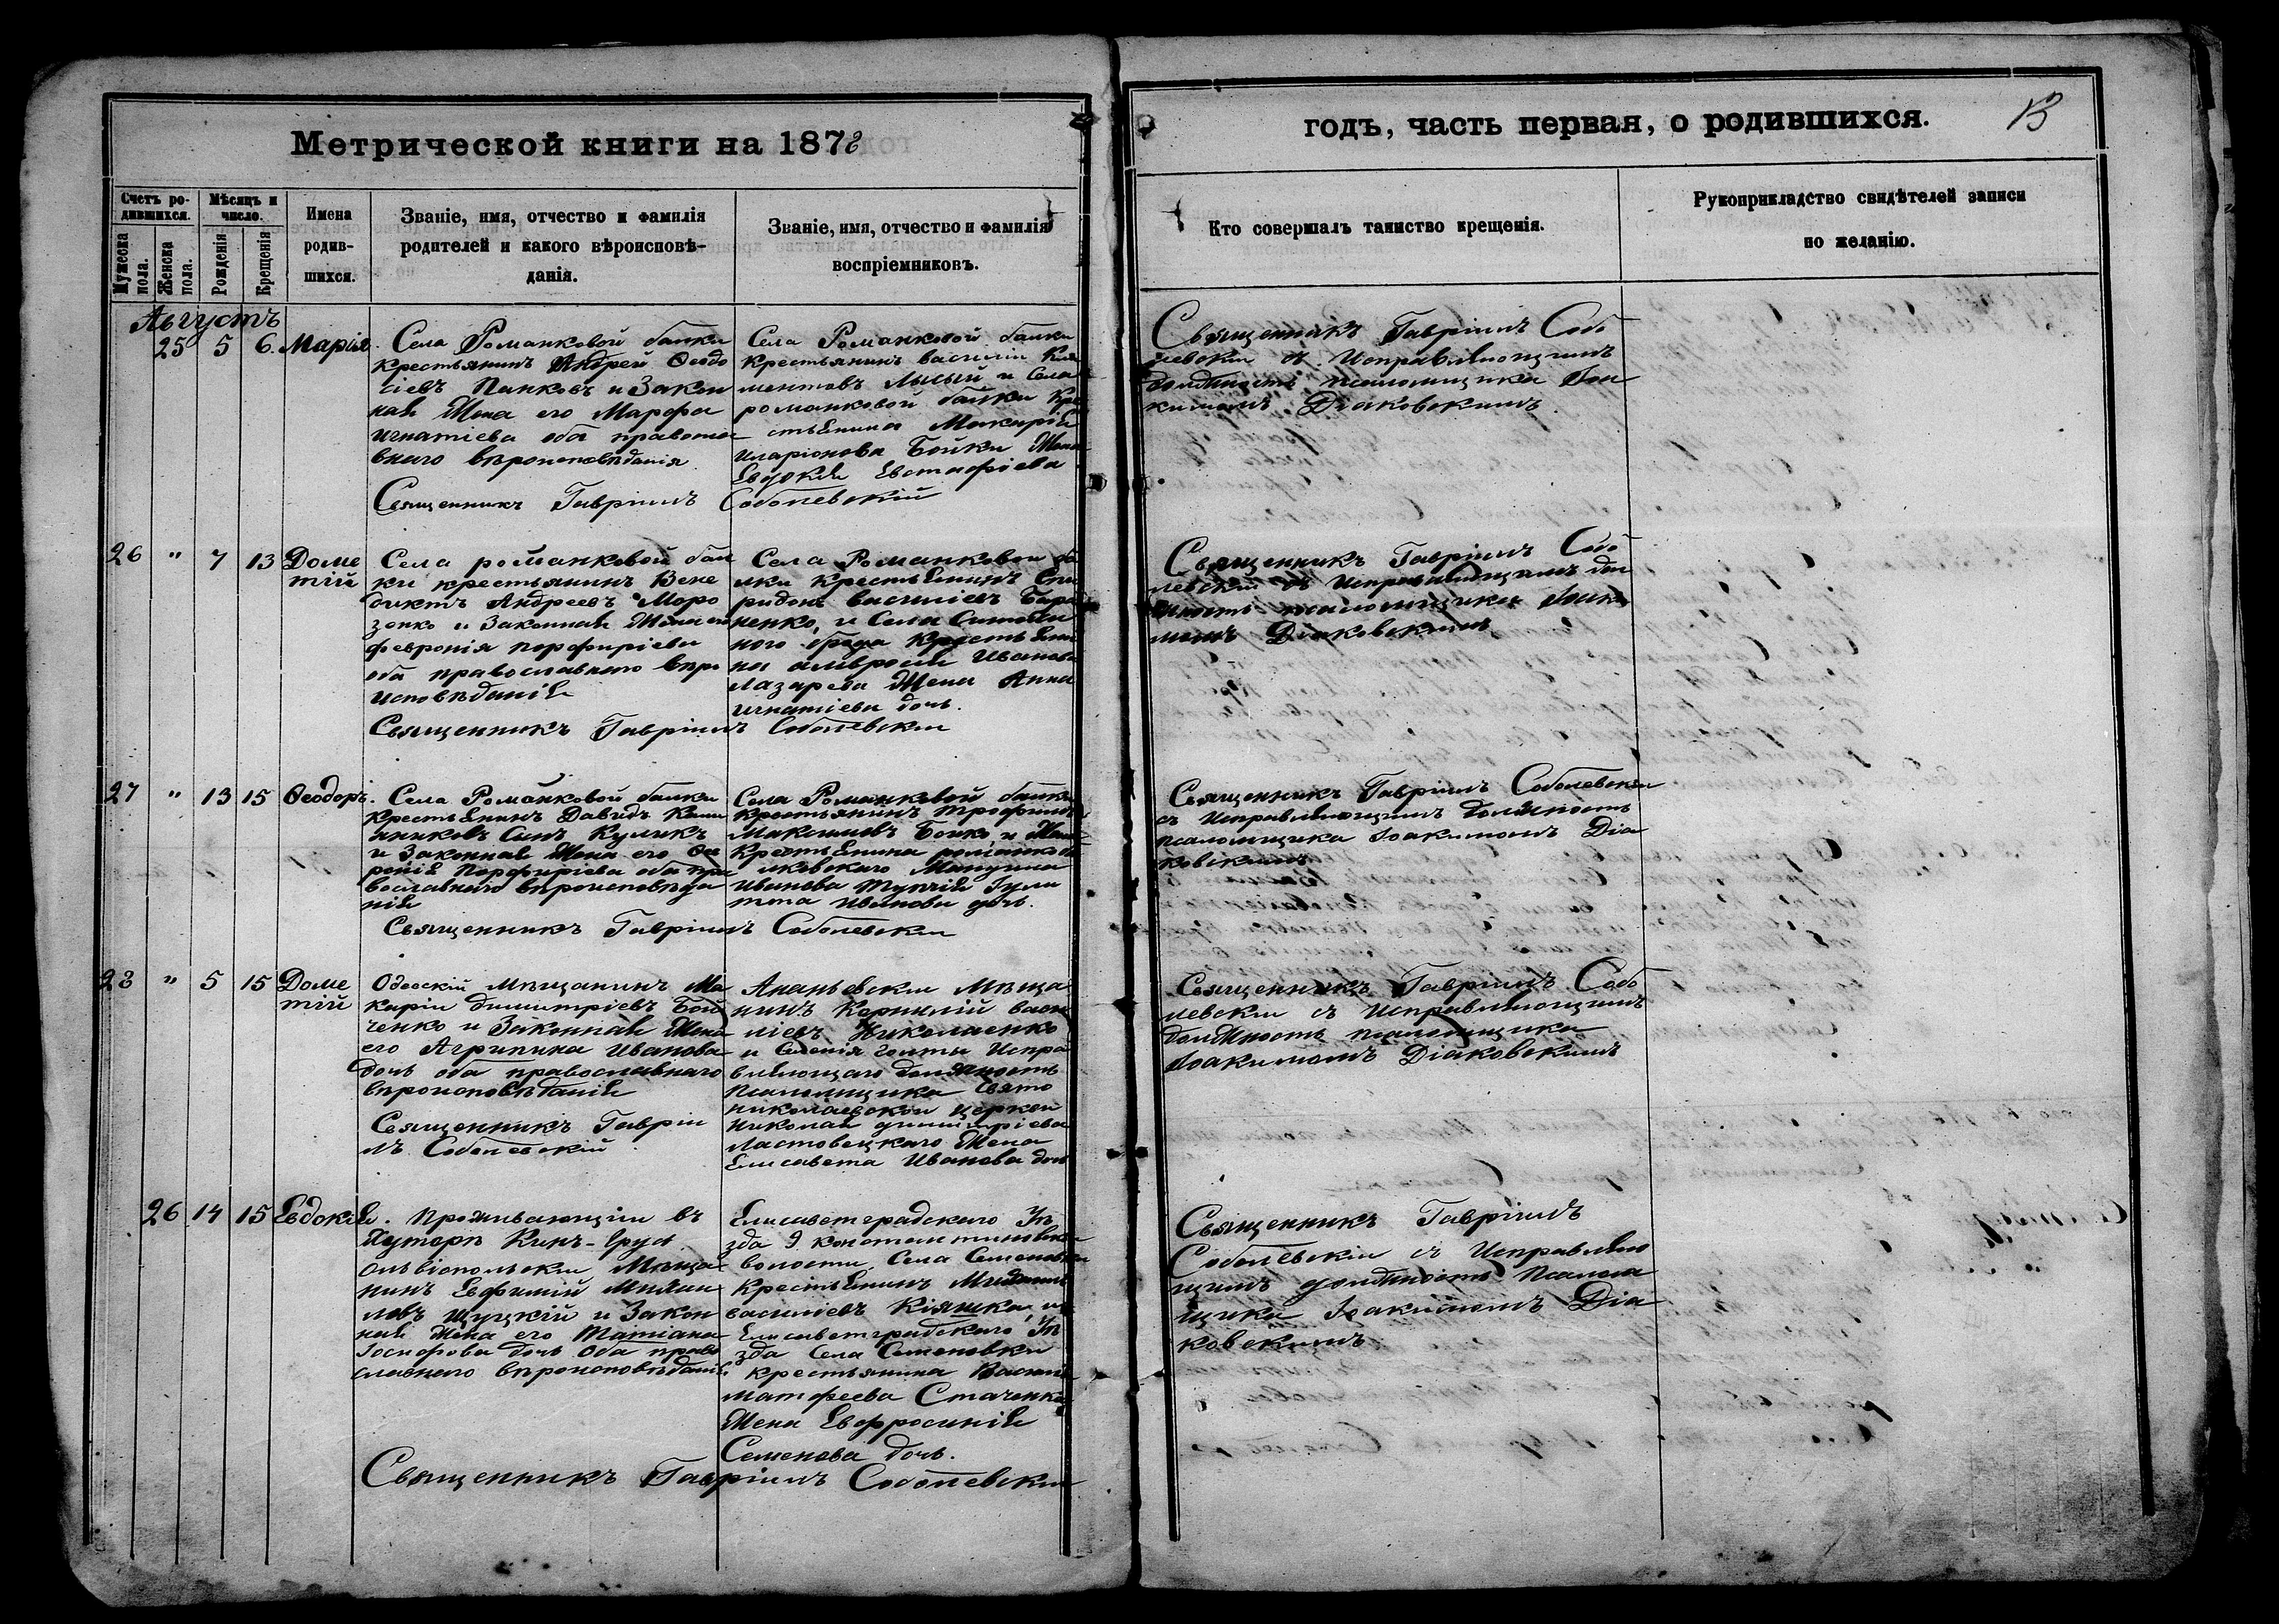 Метрической книги на 1872
годъ, часть первая, о родившихся.
13
Счетъ ро-
дившихся.
Мужеска пола.
Женска пола.
Мѣсяцъ и
число.
Рожденія
Крещенія
Имена
родив-
шихся.
Званіе, имя, отчество и фамилія
родителей и какого вѣроисповѣ-
данія.
Званіе, имя, отчество и фамилія
воспріемниковъ.
Кто совершалъ таинство крещенія.
Рукоприкладство свидѣтелей записи
по желанію.
Августъ
25 5 6. Марія.
Села Романковой балки
крестьянинъ Андрей Ѳеодо
сіевъ Панковъ и Закон
ная Жена его Марфа
игнатіева оба православ
внаго вѣроисповѣданія
Села Романковой балки
Крестьянинъ василій Кли
ментовъ Лысый и Села
романковой балки Кре
стьянина Макарія
иларіонова Бойки Жена
Евдокія Евстафіева
Священникъ Гавріилъ Соболевскій
Священникъ Гавріилъ Собо
левскій съ Исправляющимъ
должность псаломщика Іоа
кимомъ Діаковскимъ
26 " 7 13 Доме
тій
Села романковой бал
ки крестьянинъ Вене
диктъ Андреевъ Моро
зенко и Законная Жена его
феvронія порфиріева
оба православнаго вѣро
исповѣданія
Села Романковой ба
лки Крестьянинъ Спи
ридонъ василіевъ
ненко, и Села
ного брода Крестьяни
на амвросія Иванова
Лазарева Жена Анна
игнатіева дочь.
Священникъ Гавріилъ Соболевскій
Священникъ Гавріилъ Собо
левскій съ Исправляющимъ дол
жность псаломщика Іоаки
момъ Діаковскимъ
27 " 13 15 Ѳеодоръ.
Села Романковой балки
крестьянинъ Давидъ
Сынъ Куликъ
и Законная Жена его
Порфиріева оба пра
вославнаго вѣроисповѣда
нія
Села Романковой балки
Крестьянинъ трофимъ
Максимовъ Бойко и Жена
Крестьянина
Иванова
Иванова дочь.
Священникъ Гавріилъ Соболевскій
Священникъ Гавріилъ Соболевскій
съ Исправляющимъ должность
псаломщика Іоакимомъ Діа
ковскимъ
28 " 5 15 Доме
тій
Одесскій мѣщанинъ Ма
карій димитріевъ Бой
ченко и Законная Жена
его Агрипина Иванова
дочь оба православнаго
вѣроисповѣданія
Ананьевскій Мѣща
нинъ Корнилій васи
ліевъ Николаенко
и Испра
вляющаго должность
псаломщика Свято
николаевской церкви
николая димитріева
Ластовецкаго Жена
Елисавета Иванова дочь
Священникъ Гавріи
лъ Соболевскій
Священникъ Гавріилъ Собо
левскій съ Исправляющимъ
должность псаломщика
Іоакимомъ Діаковскимъ
26 14 15 Евдокія.
Проживающій въ
Хуторѣ
Ольвіопольскій Мѣща
нинъ Евфимій Михаи
ловъ Щуцкій и Закон
ная Жена его Татіана
Іосифова дочь Оба право
славнаго вѣроисповѣданія
Елисаветградскаго Уѣ
зда константиновской
волости, Села Семеновки
Крестьянинъ
василіевъ Кіяшка, и
Елисаветградскаго Уѣ
зда Села Семеновки
Крестьянина Василія
матфеева Стаченка
Жена Евфросинія
Семенова дочь.
Священникъ Гавріилъ Соболевскій
Священникъ Гавріилъ
Соболевскій съ Исправляю
щимъ должность Псалом
щика Іоакимомъ Діа
ковскимъ